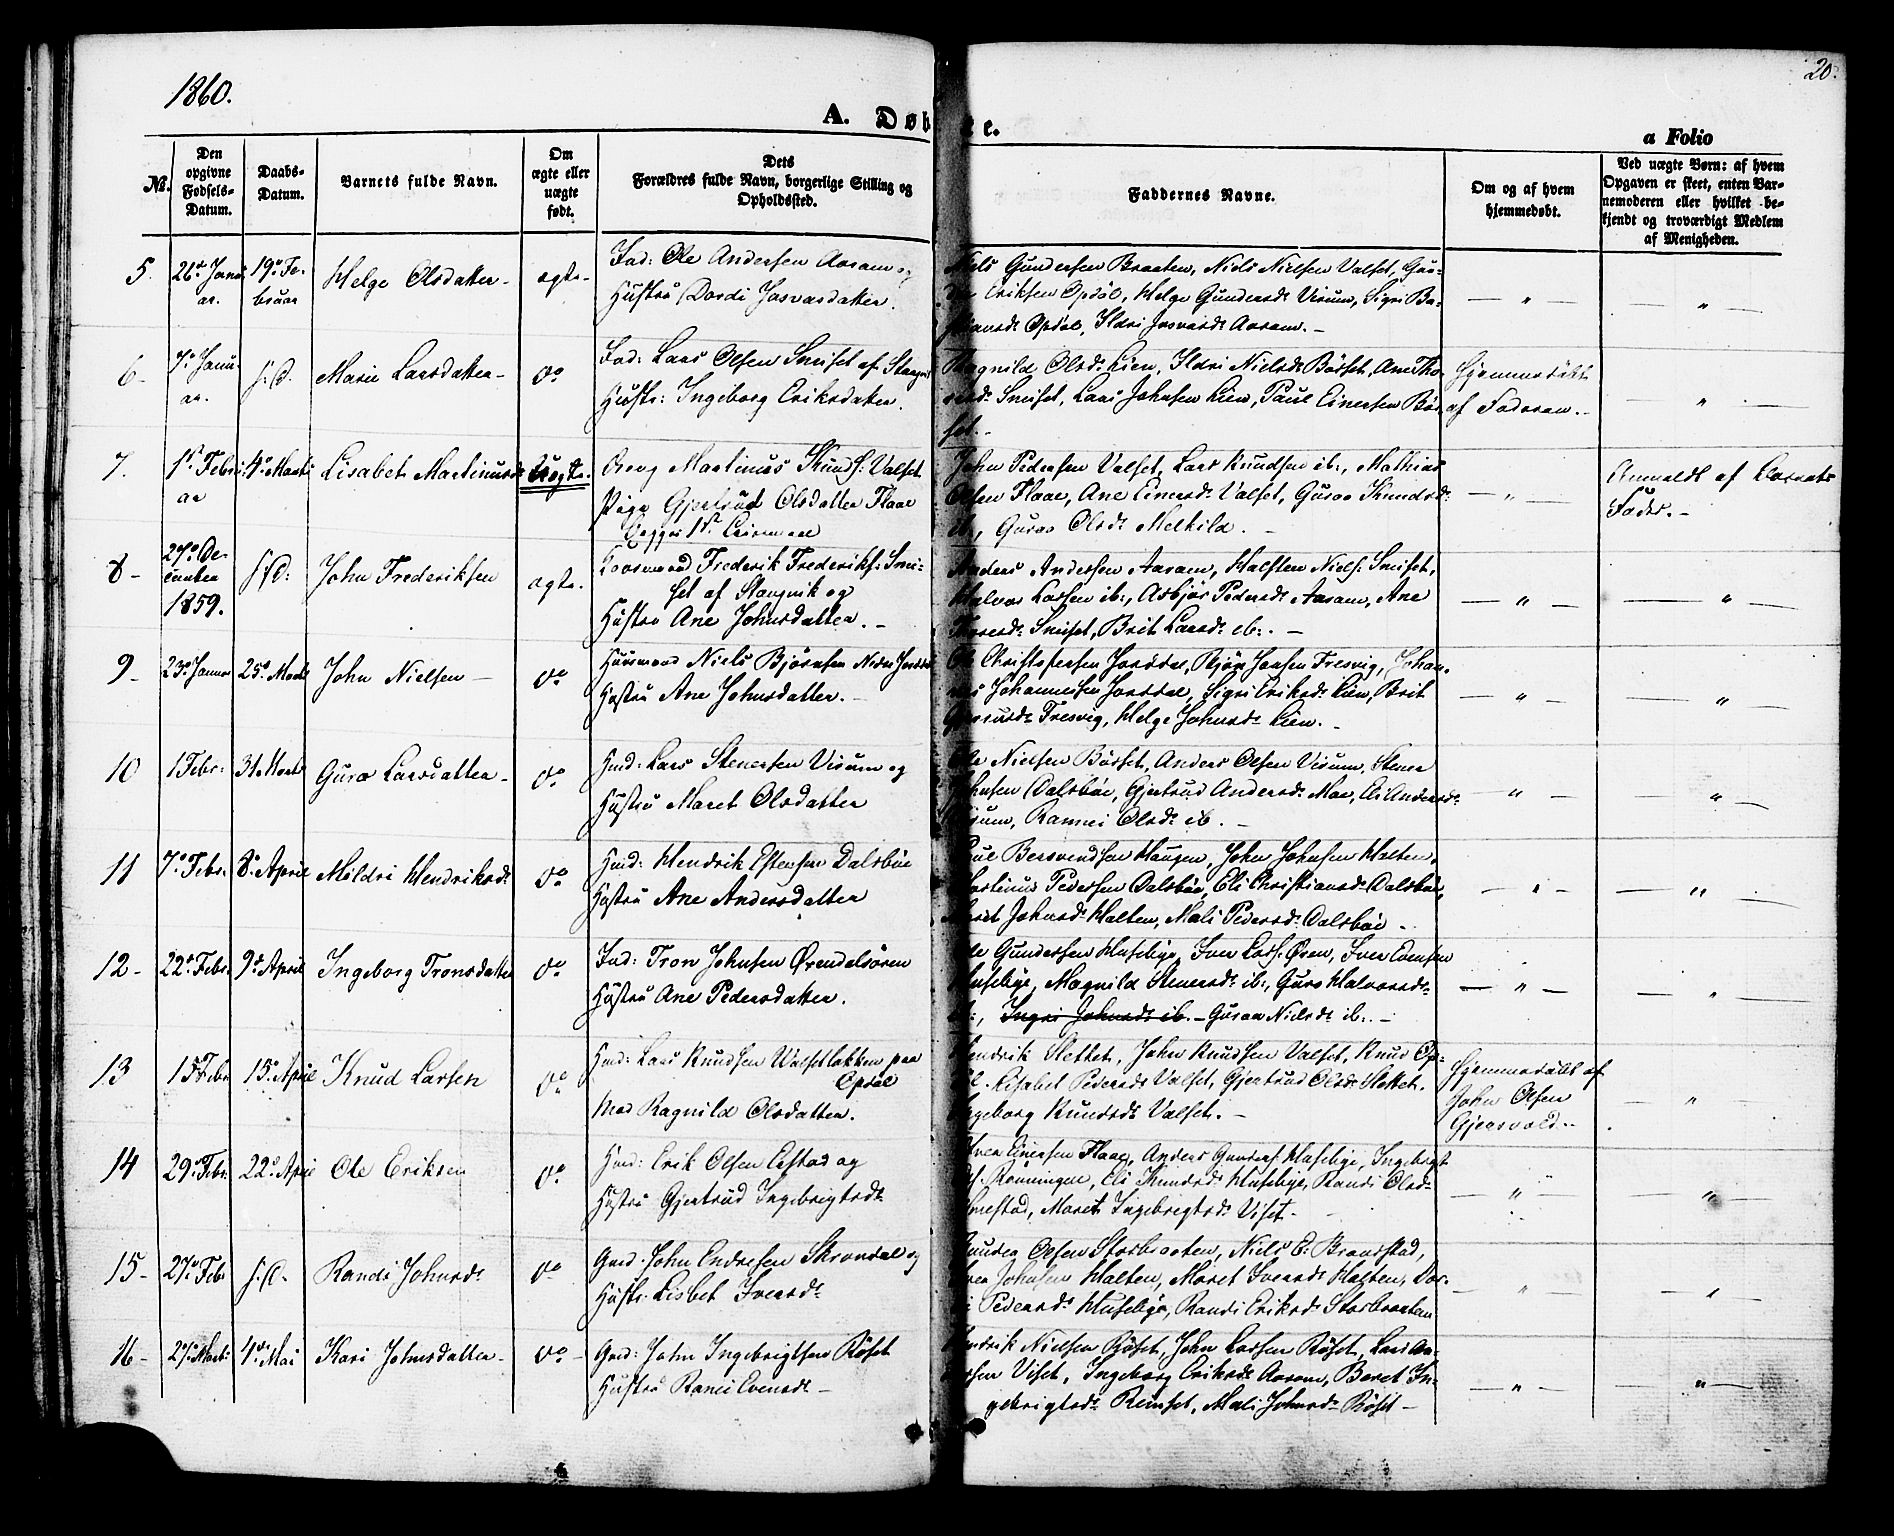 1860.
20.
A. Døb
e.
a Folio
No.
Den opgivne Fødsels-Datum.
Daabs-Datum.
Barnets fulde Navn.
Om ægte eller uægte født.
Dets Forældres fulde Navn, borgerlige Stilling og Opholdssted.
Faddernes Navne.
Om og af hvem hjemmedøbt.
Ved uægte Børn: af hvem Opgaven er skeet, enten Barnemoderen eller hvilket bekjendt og troværdigt Medlem af Menigheden.
5.
26de Janu
ar.
19de Fe-
bruar
Helge Olsdatter -
ægte.
Ind: Ole Andersen Aaram og
Hustru Dordi Josvarsdatter.
Niels Gundersen Braaten, Niels Nielsen Valset, Gun-
Eriksen Opdøl, Helge Gundersdr Visum, Sigri
Opdøl, Ildri Josvarsdr Aaram. -
— " —
— " —
6 -
7de Janu
ar.
s:D.
Marie Larsdatter -
do
Ind: Lars Olsen Smiset af Stangvik
Hustr: Ingeborg Eriksdatter.
Magnild Olsdr Lien, Ildri Nielsdr Bøset, Ane Tho-
Smiset, Lars Johnsen Lien, Paul Einersen Bø
set. -
Hjemmedøbt
af Faderen. -
— " —
7.
1ste Febru
ar
4de Marts
Lisabet Martinusdr
Uægte.
Ung Martinus Knuds: Valset
Pige Gjertrud Olsdatter Flaae
Begges 1ste Leiermaal
John Pedersen Valset, Lars Knudsen ib:, Mathias
Olsen Flaae, Ane Einersdr Valset, Guroe Knudsdr
ib., Guroe Olsdr Melkild. -
— " —
Anmeldt af Barnets
Fader. -
8 -
27de De-
cember
1859.
s:D:
John Frederiksen
ægte.
Frederik Frederiks: Smi-
set af Stangvik og
Hustru Ane Johnsdatter. -
Anders Andersen Aaram, Halsten Niels: Smiset,
Halvor Larsen ib:, Asbjør Pedersdr Aaram, Ane
Smiset, Brit Larsdr ib:. -
— " —
— " —
9 -
23de Januar
25de Marts
John Nielsen -
do
Huusmand Niels Bjørnsen Nedre Jordal
Hustru Ane Johnsdatter. -
Ole Christophersen Jordal, Bjørn Jonsen Fresvig, Johan-
nes Johannesen Jordal, Sigri Eriksdr Lien, Brit
Fresvig, Helge Johnsdr Lien. -
— " —
— " —
10
1 Febr:
31 Marts
Guro Larsdatter -
do
Hmd: Lars Stenersen Visum og
Hustru Maret Olsdatter
Nielsen Bøset, Anders Olsen Visum, Stener
Johnsen Dalsbøe, Gjertrud Andersdr Moe, Eli Andersdr
Visum, Rannei Olsdr ib. -
— " —
— " —
11
7de Febr:
8de April
Mildri Hendriksdr
do
Hmd: Hendrik Estensen Dalsbøe
Hustru Ane Andersdatter
Poul Bersvendsen Haugen, John Johnsen Halten,
Martinus Pedersen Dalsbøe, Eli Christiansdr Dalsbøe,
Maret Johnsdr Halten, Mali Pedersdr Dalsbøe -
— " —
— " —
12 -
22de Febr:
9de April
Ingeborg Tronsdatter
do
Ind: Tron Johnsen Ørendalsøren
Hustru Ane Pedersdatter.
Ole Gundersen Husebye, Iver Lars: Øren, Iver Evensen
Husebye, Magnild Stenersdr ib:, Guro Halvorsdr
ib:, Ingri Johnsdr ib. - Guroe Nielsdr ib:. -
— " —
— " —
13
15 Febr
15de April
Knud Larsen
do
Hmd: Lars Knudsen Valsetløkken paa
Opdøl
Mod Ragnild Olsdatter.
Hendrik Slettet, John Knudsen Valset, Knud Op-
Lisabet Pedersdr Valset, Gjertrud Olsdr Slettet.
Ingeborg Knudsdr Valset. -
Hjemmedøbt af
John Olsen
Gjersvold. -
— " —
14
29de Febr:
22de April
Ole Eriksen
do
Hmd: Erik Olsen og
Hustru Gjertrud Ingebrigtsdr
Iver Einersen Flaae, Anders Gunders: Husebye, Ingebrigt
Rønningen, Eli Knudsdr Husebye, Randi Olsdr
Maret Ingebrigtsdr Viset -
— " —
— " —
15 -
27de Febr
s:D.
Randi Johnsdr
do
Gmd: John Endresen Skrondal og
Hustr. Lisbet Iversdr
Olsen Storbraaten, Niels E: Brandstad,
Iver Johnsen Halten, Maret Iversdr Halten, Dor-
Pedersdr Husebye, Randi Eriksdr Storbraaten
— " —
— " —
16 -
27de Marts
4de Mai
Kari Johnsdatter -
do -
Gmd: John Ingebrigtsen Røset
Hustru Ranei Evensdr -
Hendrik Nielsen Røset, John Larsen Røset, Lars
Viset, Ingeborg Eriksdr Aaram, Beret In-
gebrigtsdr Remset, Mali Johnsdr Røset -
— " —
— " —